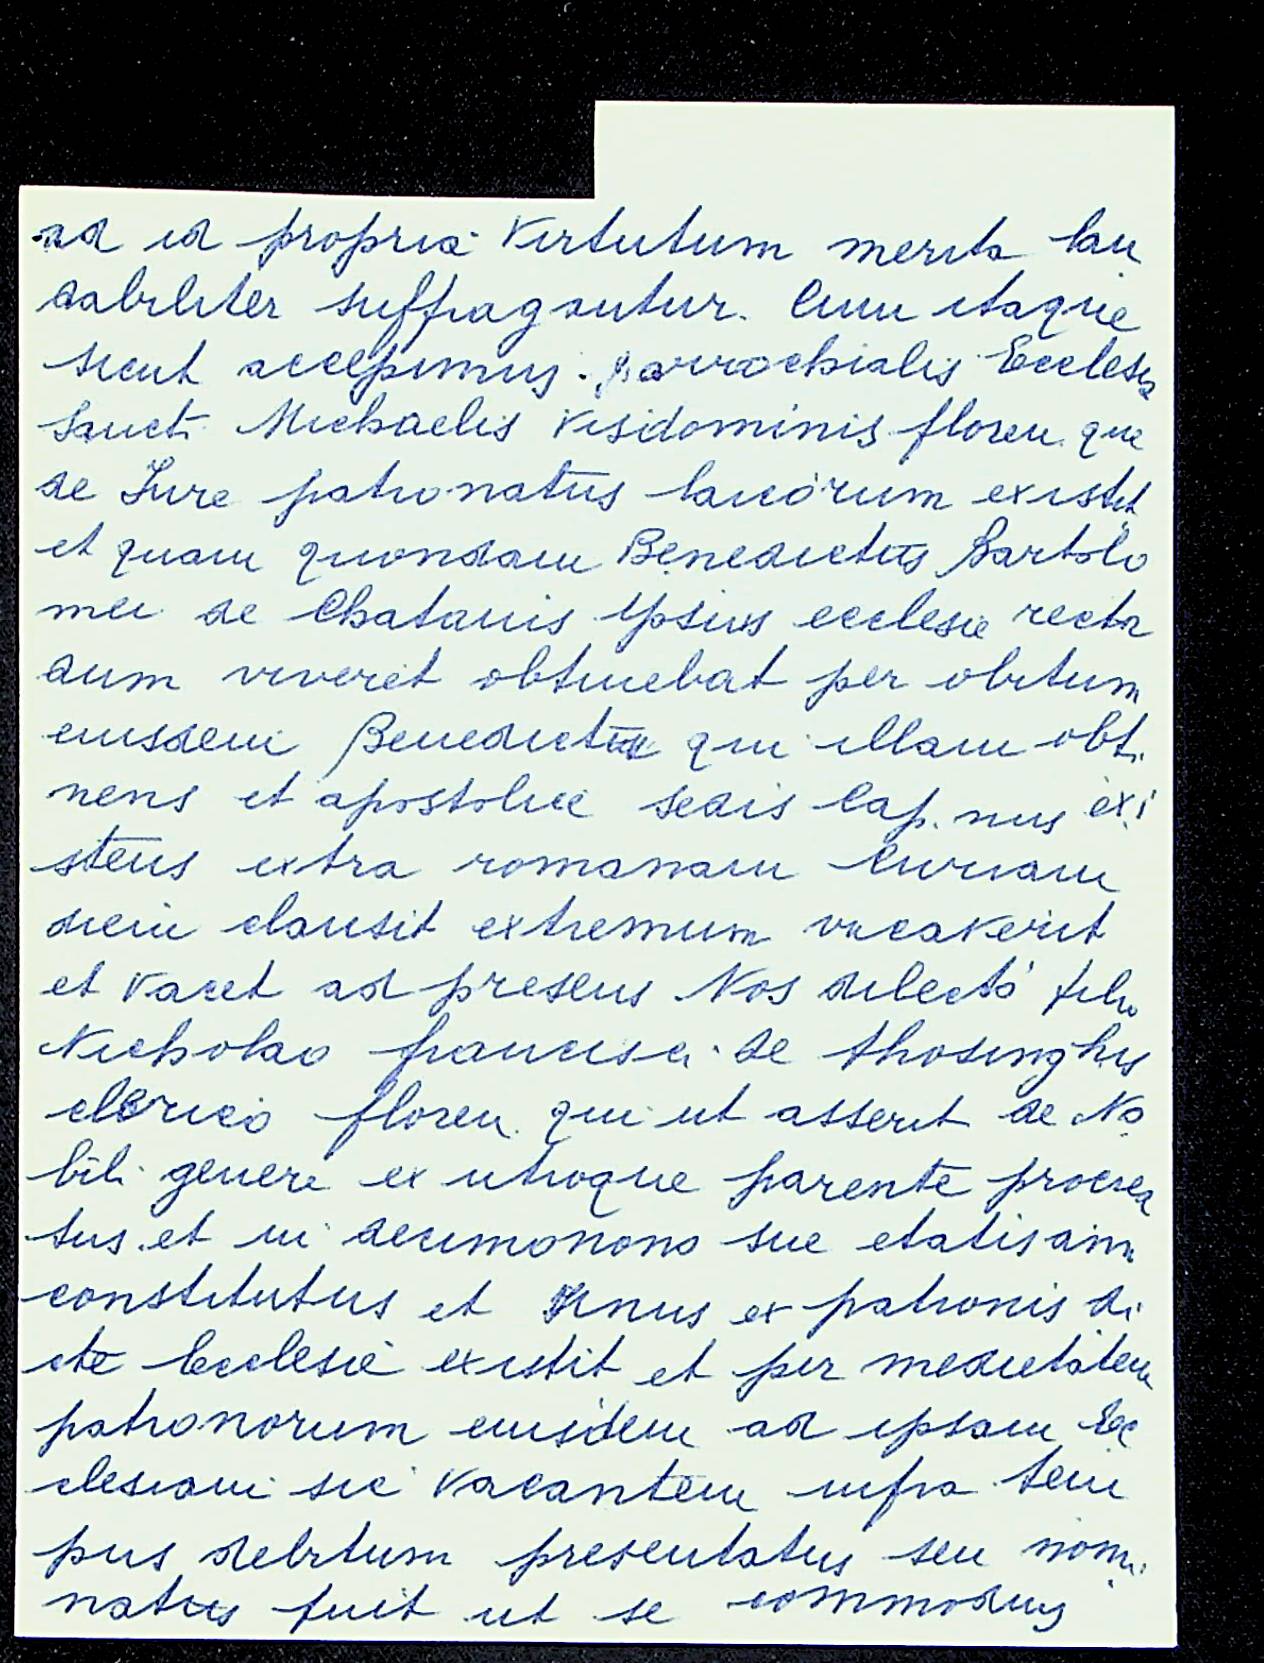 ad id propria Virtutum merita lau
dabiliter suffragantur. Cum itaque
sicut accepimus parrochialis Ecclesia
Sancti Michaelis Visidominis floren. que
de Jure patronatus laicorum existit
et quam quondam Benedictus Bartolo
mei de Chatanis ipsius ecclesie rector
dum viveret obtinebat per obitum
eiusdem Benedicti qui illam obti
nens et apostolice sedis Cap. nus exi
stens extra romanam Curiam
diem clausit extremum vacaverit
et vacet ad presens Nos dilecto filio
Nicholao francisci de thosinghis
clerico floren. qui ut asserit de No
bili genere ex utroque parente procrea
tus et in decimonono sue etatis anno
constitutus et Unus ex patronis di
cte Ecclesie existit et per medietatem
patronorum eiusdem ad ipsam Ec
clesiam sic vacantem infra tem
pus debitum presentatus seu nomi
natus fuit ut se commodius